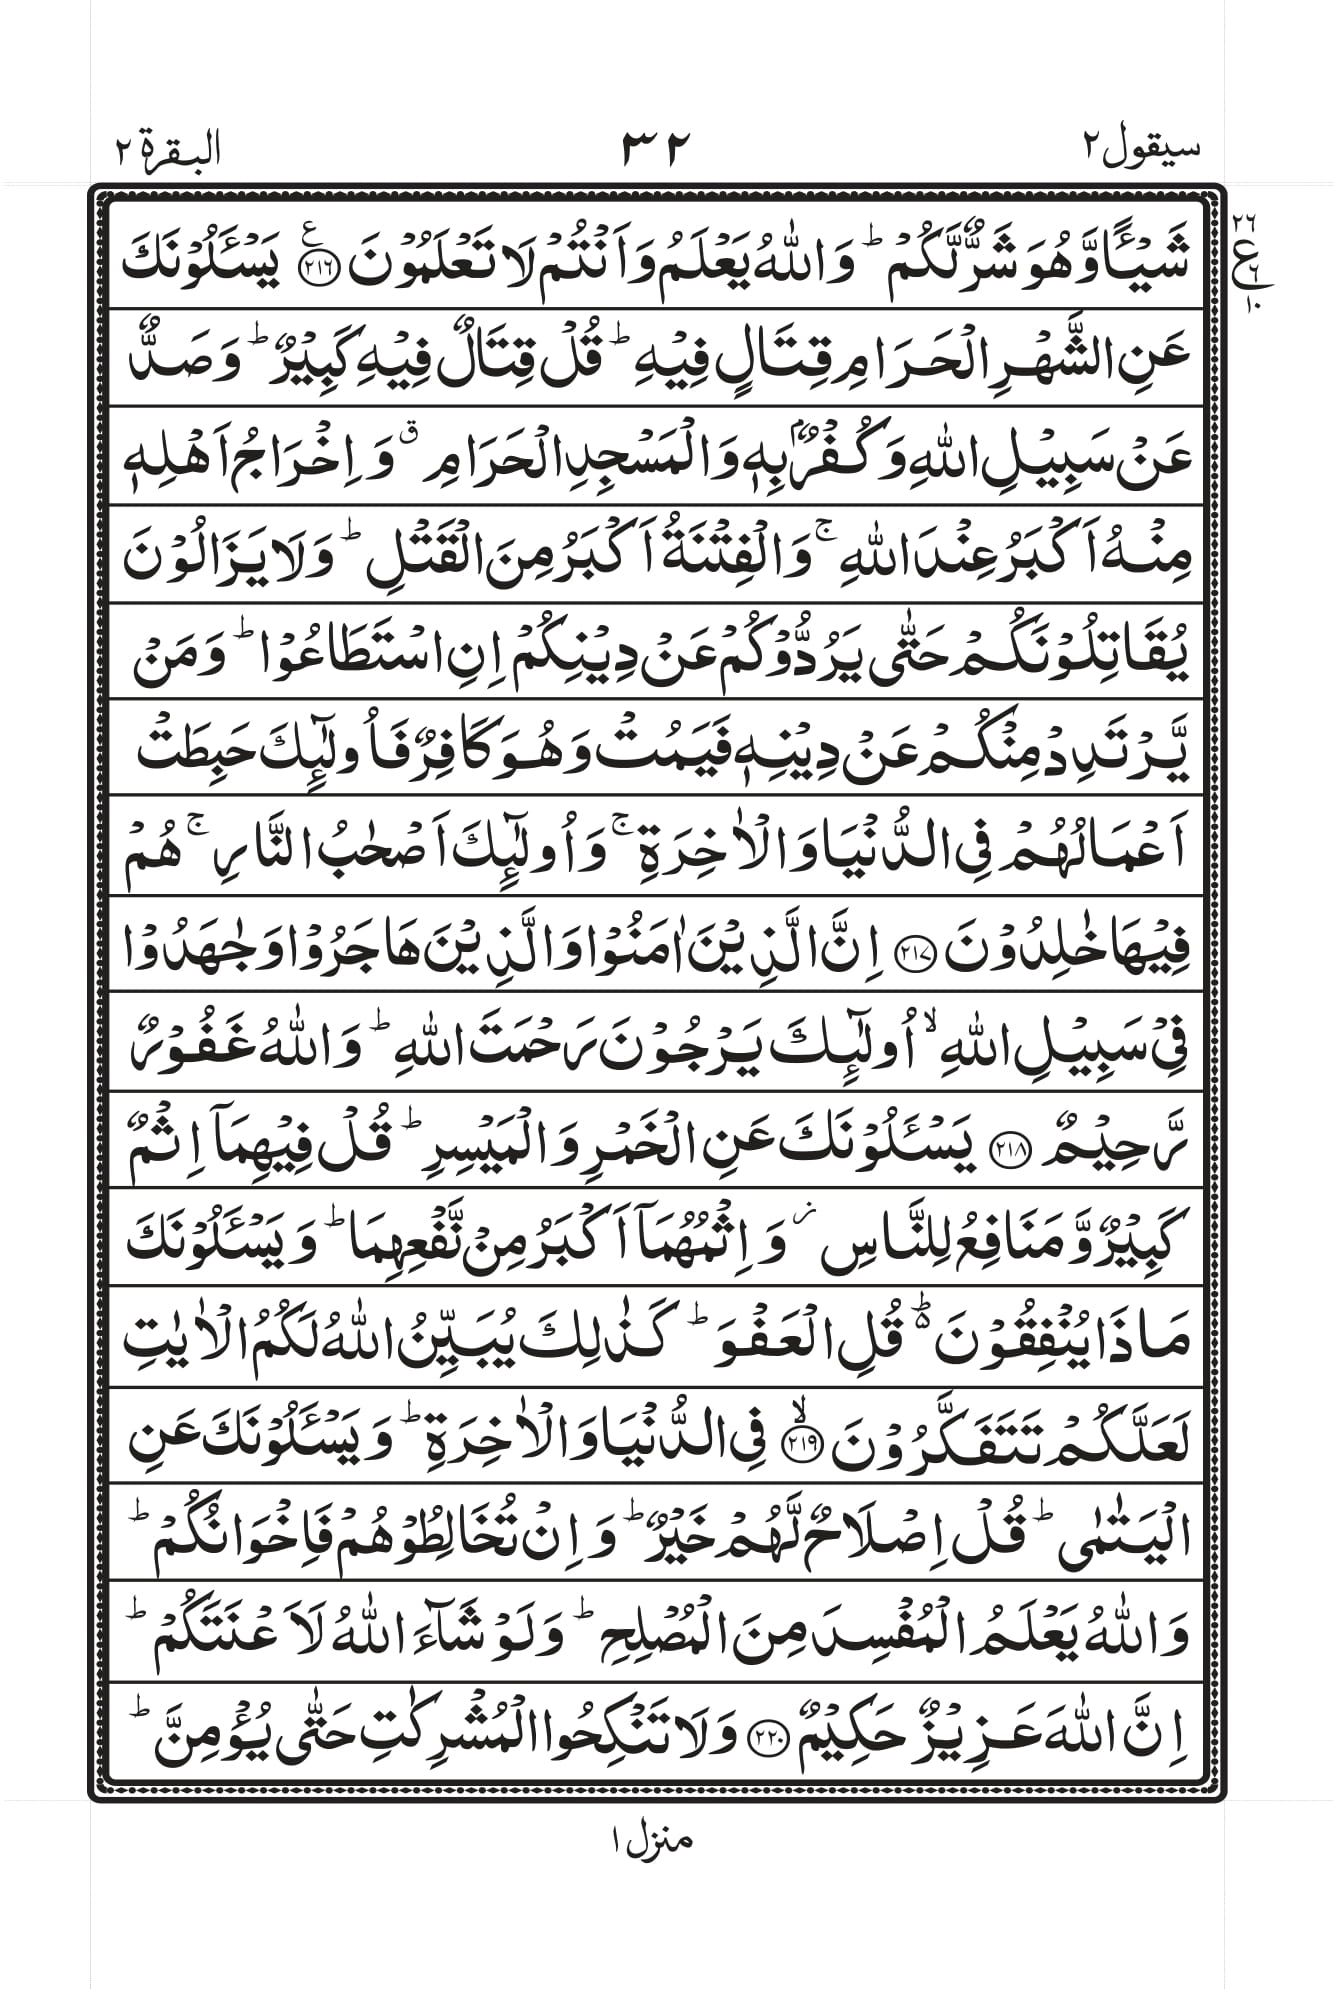 سیقول ٢
٣٢
البقرة ٢
شَیْـًٔا وَّهُوَ شَرٌّ لَّكُمْ ؕ وَاللّٰهُ یَعْلَمُ وَاَنْتُمْ لَا تَعْلَمُوْنَ ﴿٢١٦﴾ ع یَسْـَٔلُوْنَكَ
٢٦
ع
٦
١٠
عَنِ الشَّهْرِ الْحَرَامِ قِتَالٍ فِیْهِ ؕ قُلْ قِتَالٌ فِیْهِ كَبِیْرٌ ؕ وَصَدٌّ
عَنْ سَبِیْلِ اللّٰهِ وَكُفْرٌۢ بِهٖ وَالْمَسْجِدِ الْحَرَامِ ۗ وَاِخْرَاجُ اَهْلِهٖ
مِنْهُ اَكْبَرُ عِنْدَ اللّٰهِ ۚ وَالْفِتْنَةُ اَكْبَرُ مِنَ الْقَتْلِ ؕ وَلَا یَزَالُوْنَ
یُقَاتِلُوْنَكُمْ حَتّٰی یَرُدُّوْكُمْ عَنْ دِیْنِكُمْ اِنِ اسْتَطَاعُوْا ؕ وَمَنْ
یَّرْتَدِدْ مِنْكُمْ عَنْ دِیْنِهٖ فَیَمُتْ وَهُوَ كَافِرٌ فَاُولٰٓئِكَ حَبِطَتْ
اَعْمَالُهُمْ فِی الدُّنْیَا وَالْاٰخِرَةِ ۚ وَاُولٰٓئِكَ اَصْحٰبُ النَّارِ ۚ هُمْ
فِیْهَا خٰلِدُوْنَ ﴿٢١٧﴾ اِنَّ الَّذِیْنَ اٰمَنُوْا وَالَّذِیْنَ هَاجَرُوْا وَجٰهَدُوْا
فِیْ سَبِیْلِ اللّٰهِ ۙ اُولٰٓئِكَ یَرْجُوْنَ رَحْمَتَ اللّٰهِ ؕ وَاللّٰهُ غَفُوْرٌ
رَّحِیْمٌ ﴿٢١٨﴾ یَسْـَٔلُوْنَكَ عَنِ الْخَمْرِ وَالْمَیْسِرِ ؕ قُلْ فِیْهِمَاۤ اِثْمٌ
كَبِیْرٌ وَّمَنَافِعُ لِلنَّاسِ ؗ وَاِثْمُهُمَاۤ اَكْبَرُ مِنْ نَّفْعِهِمَا ؕ وَیَسْـَٔلُوْنَكَ
مَاذَا یُنْفِقُوْنَ ۬ؕ قُلِ الْعَفْوَ ؕ كَذٰلِكَ یُبَیِّنُ اللّٰهُ لَكُمُ الْاٰیٰتِ
لَعَلَّكُمْ تَتَفَكَّرُوْنَ ﴿٢١٩﴾ ۙ فِی الدُّنْیَا وَالْاٰخِرَةِ ؕ وَیَسْـَٔلُوْنَكَ عَنِ
الْیَتٰمٰی ؕ قُلْ اِصْلَاحٌ لَّهُمْ خَیْرٌ ؕ وَاِنْ تُخَالِطُوْهُمْ فَاِخْوَانُكُمْ ؕ
وَاللّٰهُ یَعْلَمُ الْمُفْسِدَ مِنَ الْمُصْلِحِ ؕ وَلَوْ شَآءَ اللّٰهُ لَاَعْنَتَكُمْ ؕ
اِنَّ اللّٰهَ عَزِیْزٌ حَكِیْمٌ ﴿٢٢٠﴾ وَلَا تَنْكِحُوا الْمُشْرِكٰتِ حَتّٰی یُؤْمِنَّ ؕ
منزل ١